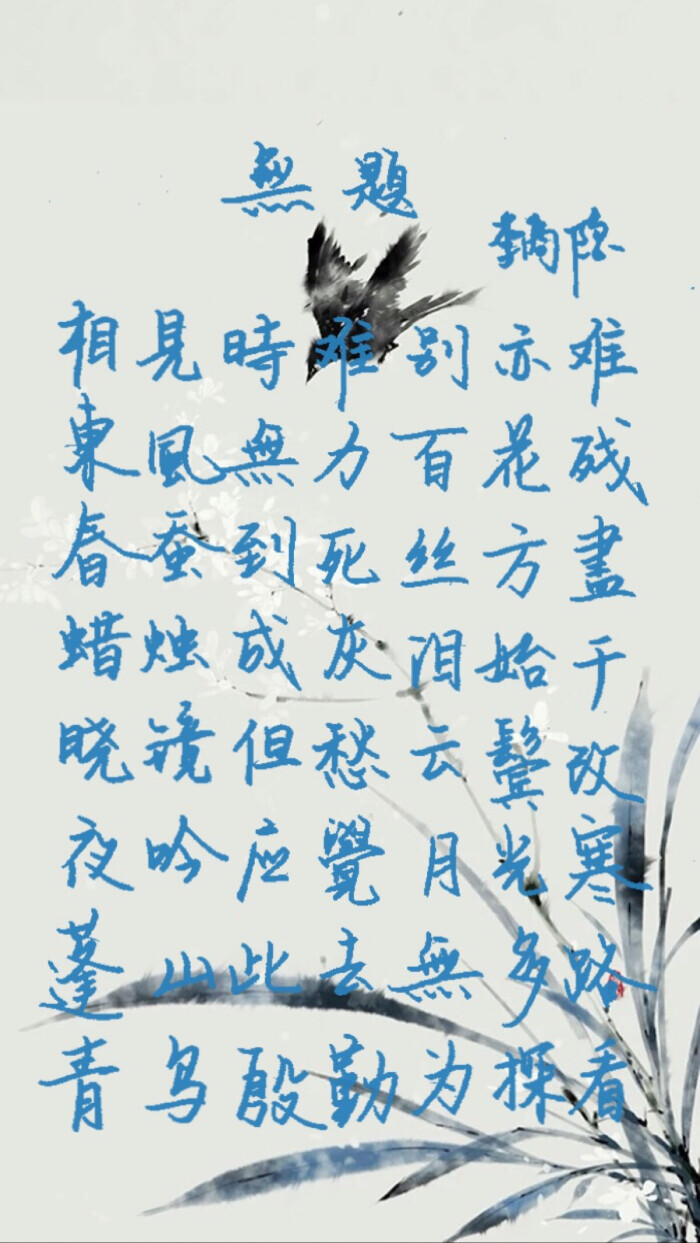 無題
李商隐
相見時难别亦难
東風無力百花残
春蚕到死丝方盡
蜡烛成灰泪始干
晓镜但愁云鬓改
夜吟应覺月光寒
蓬山此去無多路
青鸟殷勤为探看